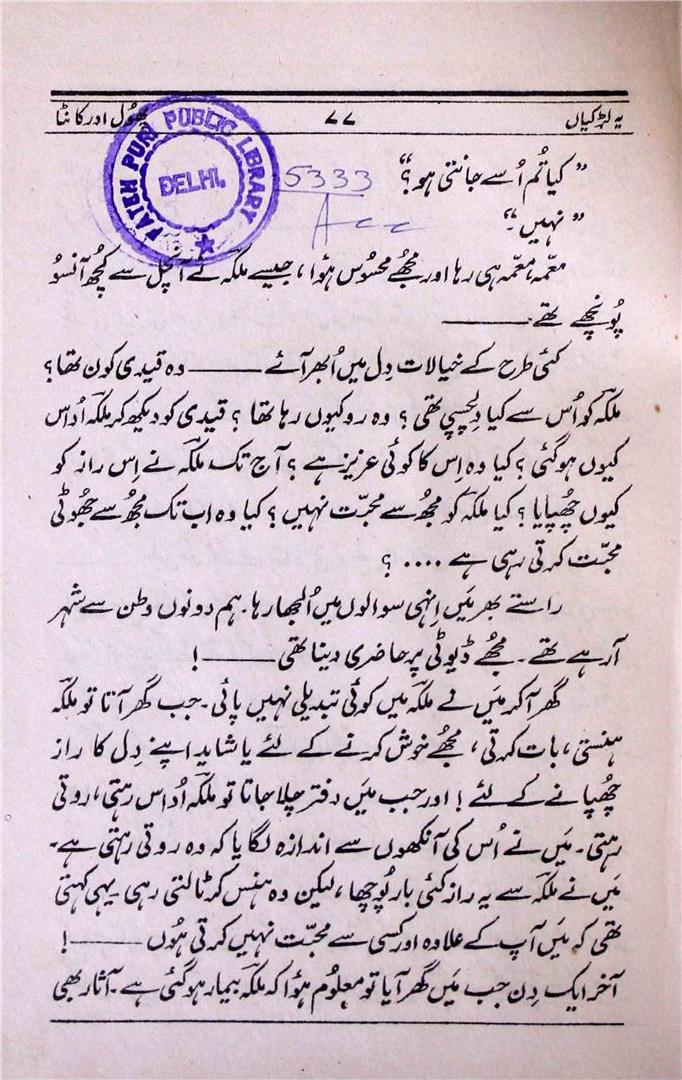 یہ لڑکیاں ۷۷ پھُول اور کانٹا
FATEH PURI PUBLIC LIBRARY
DELHI.
5333
Acc
”کیا تُم اُسے جانتی ہو؟“
”نہیں۔“
معمّہ، معمّہ ہی رہا اور مجھُے محسُوس ہوٗا، جیسے ملکہؔ نے آنچل سے کچُھ آنسوُ
پوُنچھے تھے ———
کئی طرح کے خیالات دِل میں اُبھر آئے ——— وہ قیدی کون تھا؟
ملکہؔ کو اُس سے کیا دلچسپی تھی؟ وہ رو کیوں رہا تھا؟ قیدی کو دیکھ کر ملکہؔ اُداس
کیوں ہو گئی؟ کیا وہ اِس کا کوئی عزیز ہے؟ آج تک ملکہؔ نے اِس راز کو
کیوں چھُپایا؟ کیا ملکہؔ کو مجھُ سے محبّت نہیں؟ کیا وہ اب تک مجھُ سے جھُوٹی
محبّت کرتی رہی ہے ....؟
راستے بھر مَیں اِنہی سوالوں میں اُلجھا رہا۔ ہم دونوں وطن سے شہر
آرہے تھے۔ مجھُے ڈیوٹی پر حاضری دینا تھی ———!
گھر آکر مَیں نے ملکہؔ میں کوئی تبدیلی نہیں پائی۔ جب گھر آتا تو ملکہؔ
ہنستی، بات کرتی، مجھُے خوش کرنے کے لئے یا شاید اپنے دِل کا راز
چھُپانے کے لئے! اور جب مَیں دفتر چلا جاتا تو ملکہؔ اُداس رہتی، روتی
رہتی۔ مَیں نے اُس کی آنکھوں سے اندازہ لگایا کہ وہ روتی رہتی ہے۔
مَیں نے ملکہؔ سے یہ راز کئی بار پوُچھا، لیکن وہ ہنس کر ٹالتی رہی یہی کہتی
تھی کہ مَیں آپ کے علاوہ اور کسی سے محبّت نہیں کرتی ہوُں ———!
آخر ایک دِن جب مَیں گھر آیا تو معلوُم ہوٗا کہ ملکہؔ بیمار ہو گئی ہے۔ آثار بھی